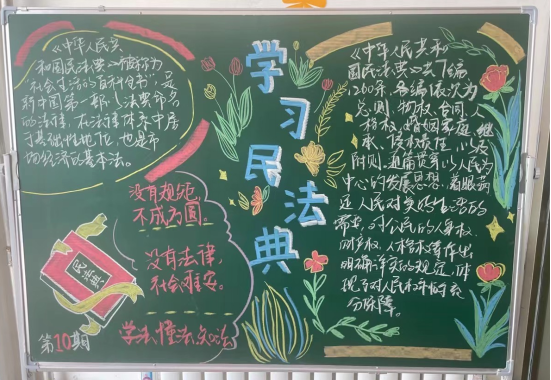 《中华人民共
和国民法典》被称为
社会生活的百科全书", 是
新中国第一部以法典命名
的法律, 在法律体系中居
于基础性地位, 也是市
场经济的基本法。
没有规矩
不成方圆。
没有法律,
社会难安。
学法、懂法、知法
民法典
第10期
学习民法典
《中华人民共和
国民法典》共7编、
1260条, 各编依次为
总则、物权、合同、人
格权、婚姻家庭、继
承、侵权责任, 以及
附则。通篇贯穿以人民为
中心的发展思想, 着眼满
足人民对美好生活的
需要, 对公民的人身权、
财产权、人格权等作出
明确详实的规定,